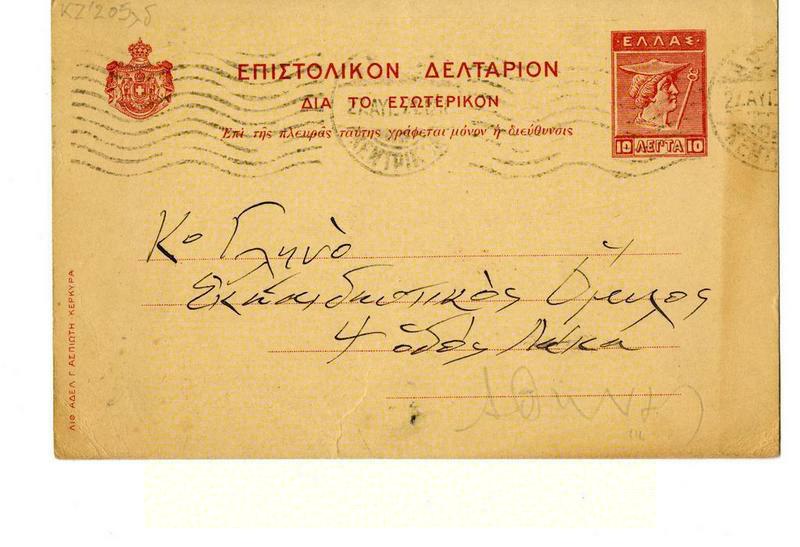 ΚΖ'205λδ
ΕΛΛΑΣ
ΕΠΙΣΤΟΛΙΚΟΝ ΔΕΛΤΑΡΙΟΝ
ΔΙΑ ΤΟ ΕΣΩΤΕΡΙΚΟΝ
Ἐπὶ τῆς πλευρᾶς ταύτης γράφεται μόνον ἡ διεύθυνσις
10 ΛΕΠΤΑ 10
Κο Γληνὸ
Ἐκπαιδευτικὸς Ὅμιλος
4 ὁδὸς
Ἀθήνας
ΛΙΘ. ΑΔΕΛ. Γ. ΑΣΠΙΩΤΗ - ΚΕΡΚΥΡΑ